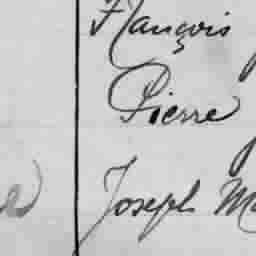 François
Pierre
Joseph